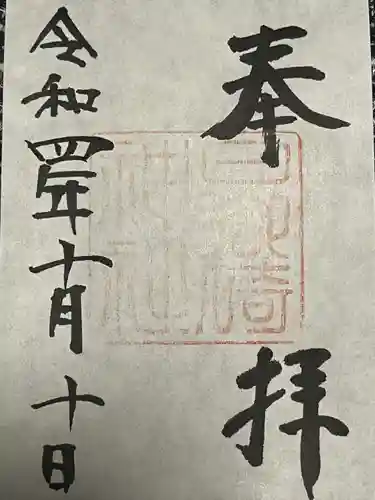 奉拝
令和四年十月十日